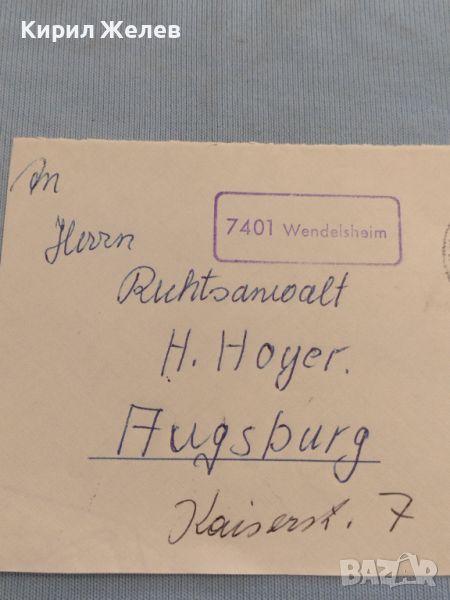 Кирил Желев
An
7401 Wendelsheim
Herrn
Rechtsanwalt
H. Hoyer.
Augsburg
Kaiserst. 7
BAZAR